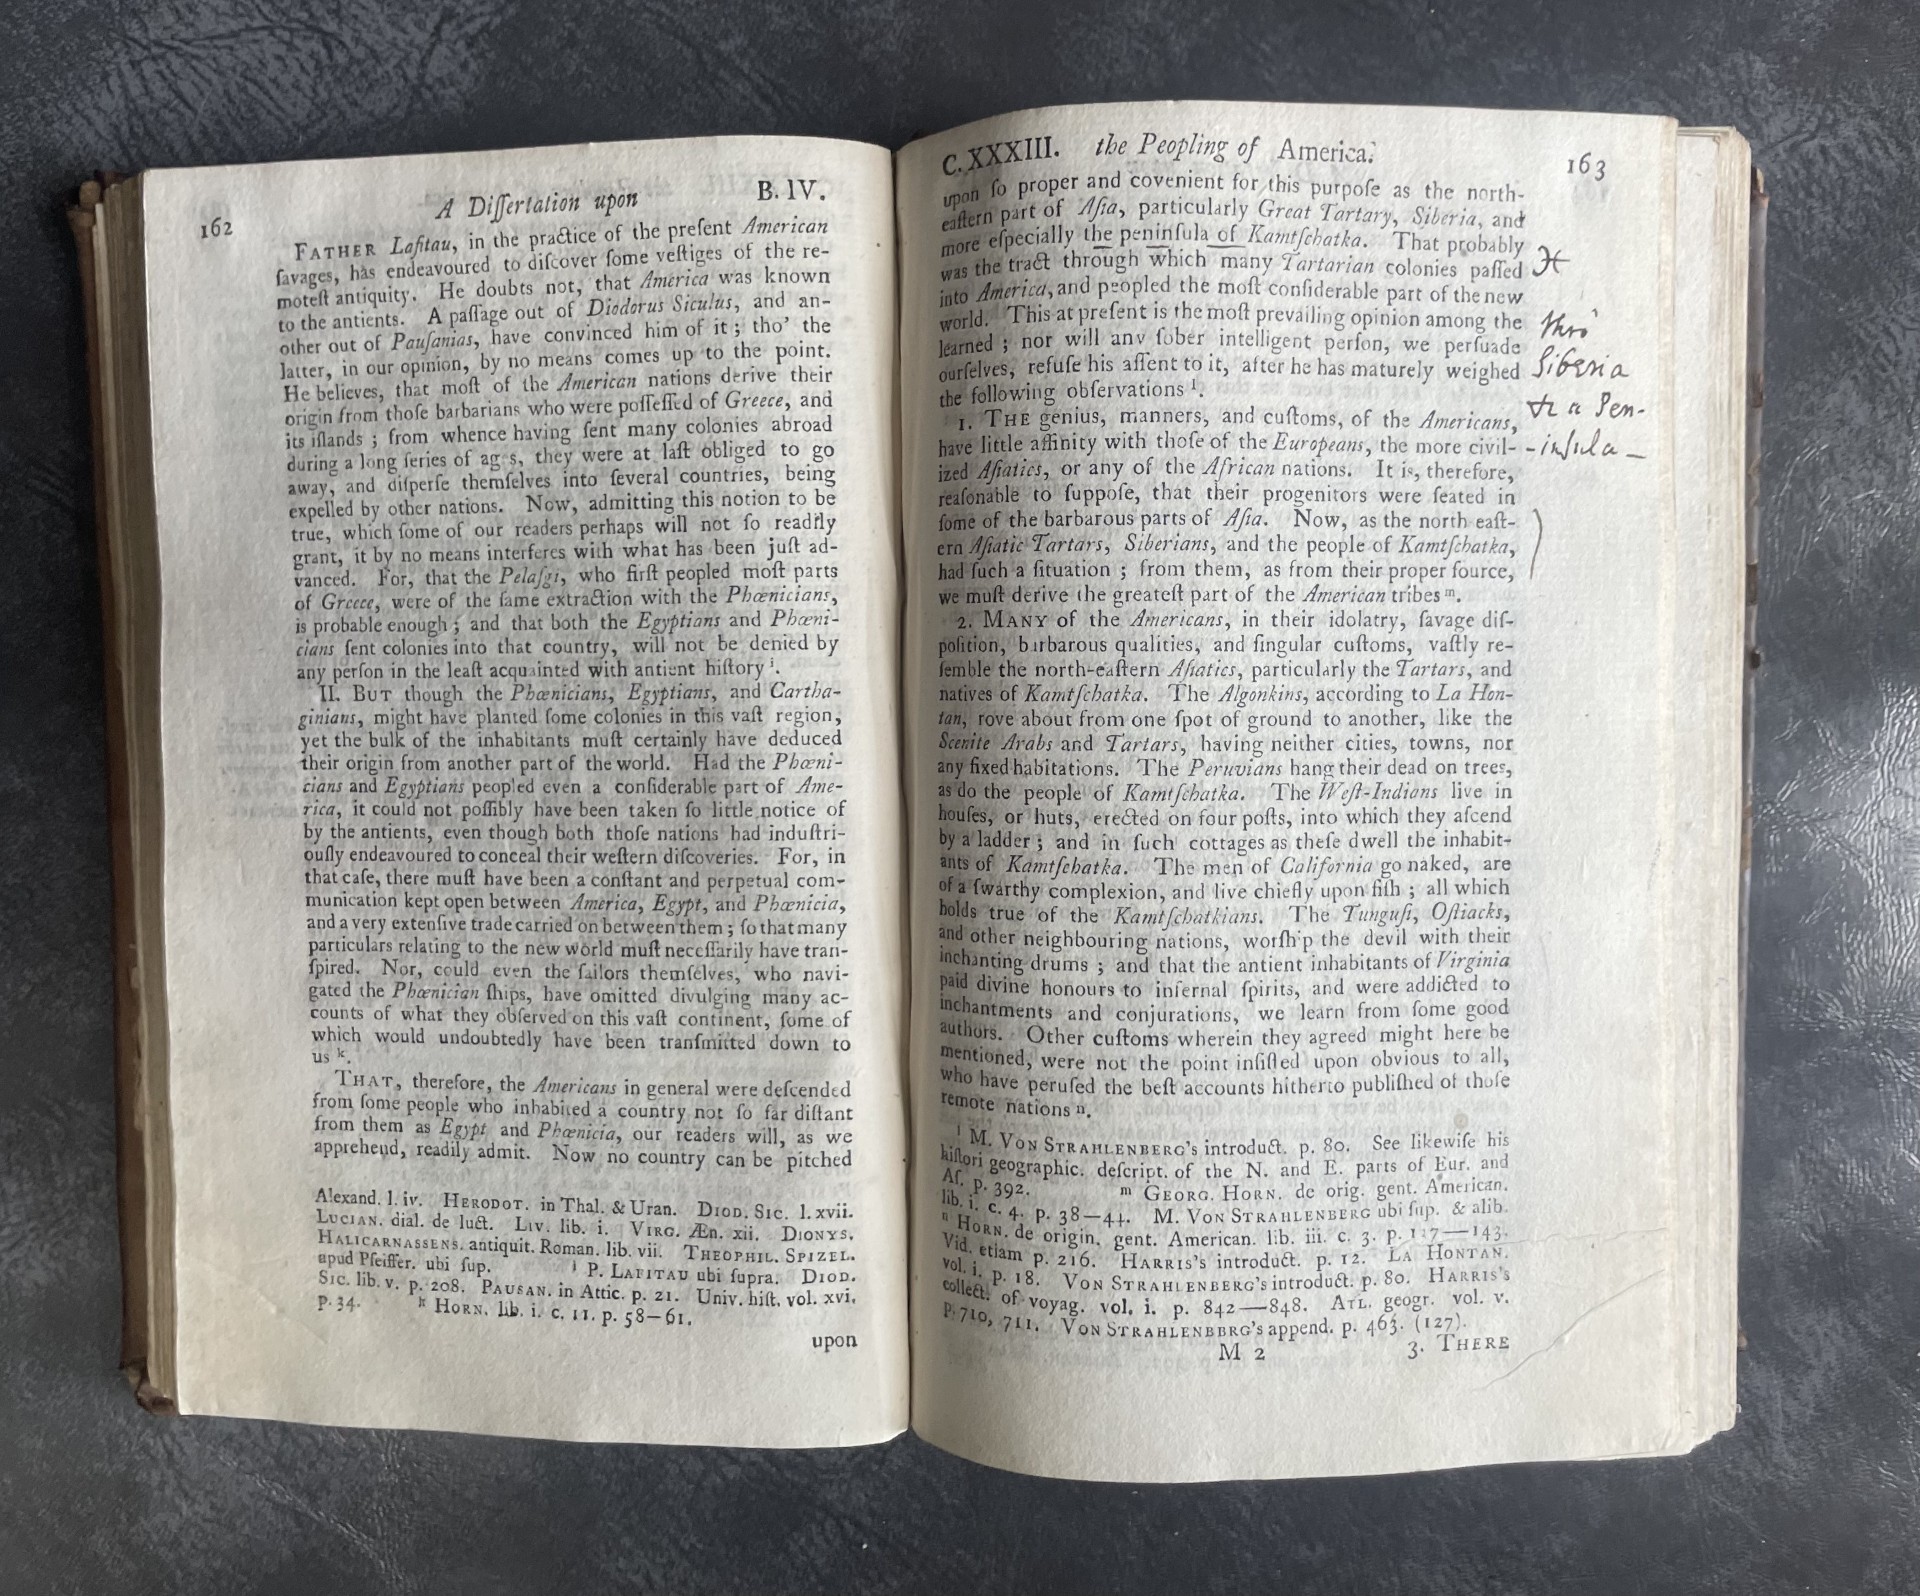 162 A Diſſertation upon B. IV.
FATHER Lafitau, in the practice of the preſent American
ſavages, has endeavoured to diſcover ſome veſtiges of the re-
moteſt antiquity. He doubts not, that America was known
to the antients. A paſſage out of Diodorus Siculus, and an-
other out of Pauſanias, have convinced him of it; tho' the
latter, in our opinion, by no means comes up to the point.
He believes, that moſt of the American nations derive their
origin from thoſe barbarians who were poſſeſſed of Greece, and
its iſlands; from whence having ſent many colonies abroad
during a long ſeries of ages, they were at laſt obliged to go
away, and diſperſe themſelves into ſeveral countries, being
expelled by other nations. Now, admitting this notion to be
true, which ſome of our readers perhaps will not ſo readily
grant, it by no means interferes with what has been juſt ad-
vanced. For, that the Pelaſgi, who firſt peopled moſt parts
of Greece, were of the ſame extraction with the Phœnicians,
is probable enough; and that both the Egyptians and Phœni-
cians ſent colonies into that country, will not be denied by
any perſon in the leaſt acquainted with antient hiſtory i.
II. BUT though the Phœnicians, Egyptians, and Cartha-
ginians, might have planted ſome colonies in this vaſt region,
yet the bulk of the inhabitants muſt certainly have deduced
their origin from another part of the world. Had the Phœni-
cians and Egyptians peopled even a conſiderable part of Ame-
rica, it could not poſſibly have been taken ſo little notice of
by the antients, even though both thoſe nations had induſtri-
ouſly endeavoured to conceal their weſtern diſcoveries. For, in
that caſe, there muſt have been a conſtant and perpetual com-
munication kept open between America, Egypt, and Phœnicia,
and a very extenſive trade carried on between them; ſo that many
particulars relating to the new world muſt neceſſarily have tran-
ſpired. Nor, could even the ſailors themſelves, who navi-
gated the Phœnician ſhips, have omitted divulging many ac-
counts of what they obſerved on this vaſt continent, ſome of
which would undoubtedly have been tranſmitted down to
us k.
THAT, therefore, the Americans in general were deſcended
from ſome people who inhabited a country not ſo far diſtant
from them as Egypt and Phœnicia, our readers will, as we
apprehend, readily admit. Now no country can be pitched
Alexand. l. iv. HERODOT. in Thal. & Uran. DIOD. SIC. l. xvii.
LUCIAN. dial. de luct. LIV. lib. i. VIRG. Æn. xii. DIONYS.
HALICARNASSENS. antiquit. Roman. lib. vii. THEOPHIL. SPIZEL.
apud Pfeiffer. ubi ſup. i P. LAFITAU ubi ſupra. DIOD.
SIC. lib. v. p. 208. PAUSAN. in Attic. p. 21. Univ. hiſt. vol. xvi.
p. 34. k HORN. lib. i. c. 11. p. 58—61.
upon
C. XXXIII. the Peopling of America. 163
upon ſo proper and covenient for this purpoſe as the north-
eaſtern part of Aſia, particularly Great Tartary, Siberia, and
more eſpecially the peninſula of Kamtſchatka. That probably
was the tract through which many Tartarian colonies paſſed
into America, and peopled the moſt conſiderable part of the new
world. This at preſent is the moſt prevailing opinion among the
learned; nor will any ſober intelligent perſon, we perſuade
ourſelves, refuſe his aſſent to it, after he has maturely weighed
the following obſervations l.
1. THE genius, manners, and cuſtoms, of the Americans,
have little affinity with thoſe of the Europeans, the more civil-
ized Aſiatics, or any of the African nations. It is, therefore,
reaſonable to ſuppoſe, that their progenitors were ſeated in
ſome of the barbarous parts of Aſia. Now, as the north eaſt-
ern Aſiatic Tartars, Siberians, and the people of Kamtſchatka,
had ſuch a ſituation; from them, as from their proper ſource,
we muſt derive the greateſt part of the American tribes m.
2. MANY of the Americans, in their idolatry, ſavage diſ-
poſition, barbarous qualities, and ſingular cuſtoms, vaſtly re-
ſemble the north-eaſtern Aſiatics, particularly the Tartars, and
natives of Kamtſchatka. The Algonkins, according to La Hon-
tan, rove about from one ſpot of ground to another, like the
Scenite Arabs and Tartars, having neither cities, towns, nor
any fixed habitations. The Peruvians hang their dead on trees,
as do the people of Kamtſchatka. The Weſt-Indians live in
houſes, or huts, erected on four poſts, into which they aſcend
by a ladder; and in ſuch cottages as theſe dwell the inhabit-
ants of Kamtſchatka. The men of California go naked, are
of a ſwarthy complexion, and live chiefly upon fiſh; all which
holds true of the Kamtſchatkians. The Tunguſi, Oſtiacks,
and other neighbouring nations, worſhip the devil with their
inchanting drums; and that the antient inhabitants of Virginia
paid divine honours to infernal ſpirits, and were addicted to
inchantments and conjurations, we learn from ſome good
authors. Other cuſtoms wherein they agreed might here be
mentioned, were not the point inſiſted upon obvious to all,
who have peruſed the beſt accounts hitherto publiſhed of thoſe
remote nations n.
l M. VON STRAHLENBERG's introduct. p. 80. See likewiſe his
hiſtori geographic. deſcript. of the N. and E. parts of Eur. and
Aſ. p. 392. m GEORG. HORN. de orig. gent. American.
lib. i. c. 4. p. 38—44. M. VON STRAHLENBERG ubi ſup. & alib.
n HORN. de origin. gent. American. lib. iii. c. 3. p. 127—143.
Vid. etiam p. 216. HARRIS's introduct. p. 12. LA HONTAN.
vol. i. p. 18. VON STRAHLENBERG's introduct. p. 80. HARRIS's
collect. of voyag. vol. i. p. 842—848. ATL. geogr. vol. v.
p. 710, 711. VON STRAHLENBERG's append. p. 463. (127).
M 2 3. THERE
thro'
Siberia
& a Pen-
-inſula -